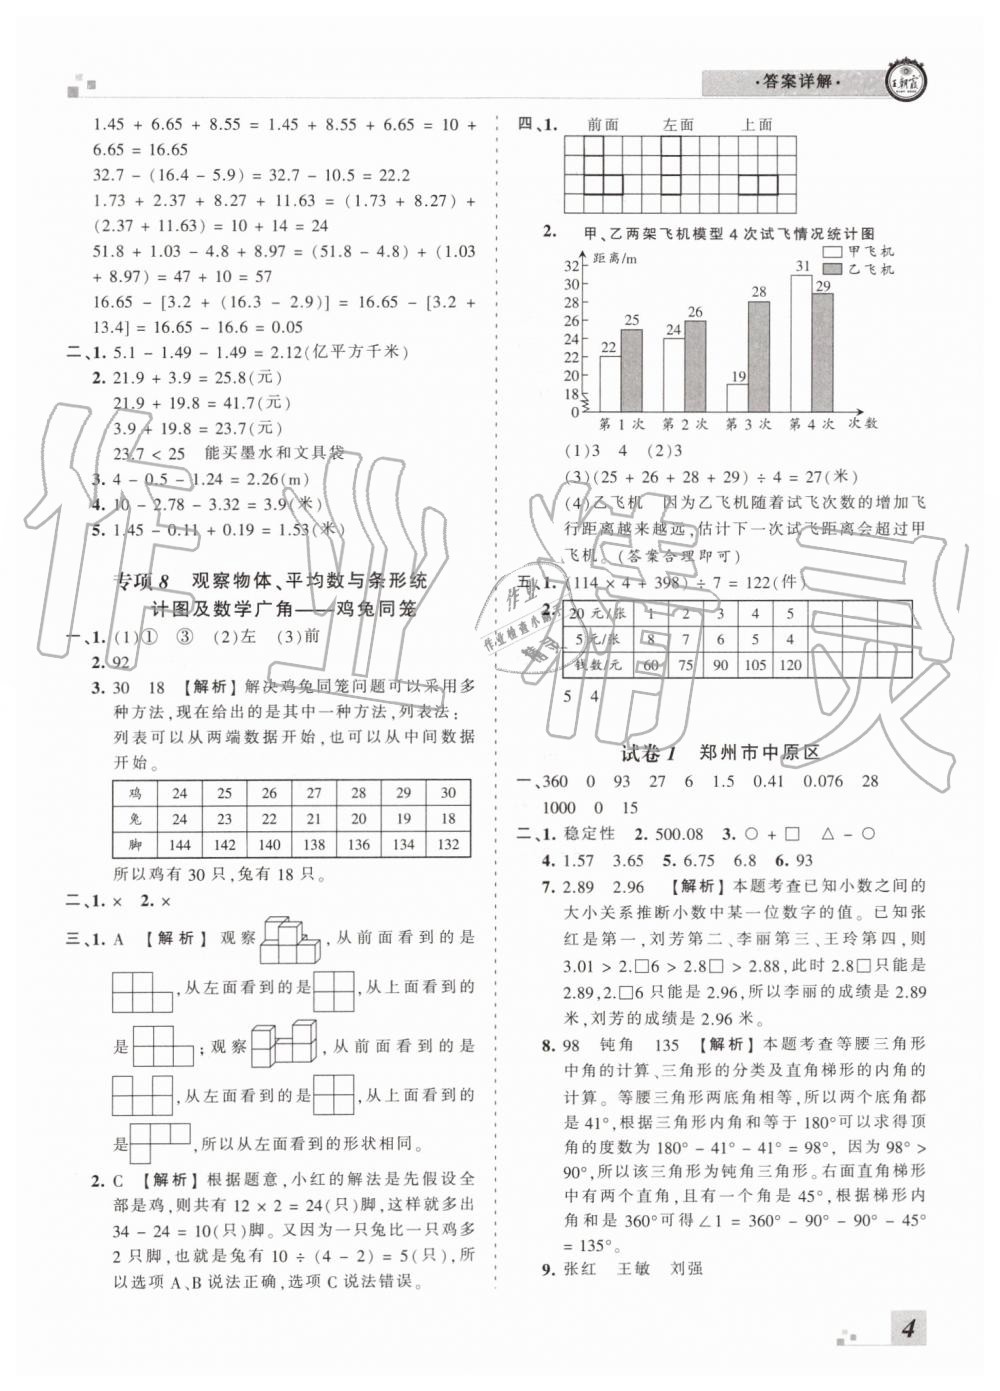 ·答案详解·
王朝霞
1.45 + 6.65 + 8.55 = 1.45 + 8.55 + 6.65 = 10 +
6.65 = 16.65
32.7 - (16.4 - 5.9) = 32.7 - 10.5 = 22.2
1.73 + 2.37 + 8.27 + 11.63 = (1.73 + 8.27) +
(2.37 + 11.63) = 10 + 14 = 24
51.8 + 1.03 - 4.8 + 8.97 = (51.8 - 4.8) + (1.03
+ 8.97) = 47 + 10 = 57
16.65 - [3.2 + (16.3 - 2.9)] = 16.65 - [3.2 +
13.4] = 16.65 - 16.6 = 0.05
二、1. 5.1 - 1.49 - 1.49 = 2.12(亿平方千米)
2. 21.9 + 3.9 = 25.8(元)
21.9 + 19.8 = 41.7(元)
3.9 + 19.8 = 23.7(元)
23.7 < 25 能买墨水和文具袋
3. 4 - 0.5 - 1.24 = 2.26(m)
4. 10 - 2.78 - 3.32 = 3.9(米)
5. 1.45 - 0.11 + 0.19 = 1.53(米)
专项 8 观察物体、平均数与条形统
计图及数学广角——鸡兔同笼
一、1. (1)① ③ (2)左 (3)前
2. 92
3. 30 18 【解析】解决鸡兔同笼问题可以采用多
种方法,现在给出的是其中一种方法,列表法:
列表可以从两端数据开始,也可以从中间数据
开始。
鸡 24 25 26 27 28 29 30
兔 24 23 22 21 20 19 18
脚 144 142 140 138 136 134 132
所以鸡有 30 只,兔有 18 只。
二、1. × 2. ×
三、1. A 【解析】观察 ,从前面看到的是
,从左面看到的是 ,从上面看到的
是 ;观察 ,从前面看到的是
,从左面看到的是 ,从上面看到的
是 ,所以从左面看到的形状相同。
2. C 【解析】根据题意,小红的解法是先假设全
部是鸡,则共有 12 × 2 = 24(只)脚,这样就多出
34 - 24 = 10(只)脚。又因为一只兔比一只鸡多
2 只脚,也就是兔有 10 ÷ (4 - 2) = 5(只),所
以选项 A、B 说法正确,选项 C 说法错误。
四、1. 前面 左面 上面
2. 甲、乙两架飞机模型 4 次试飞情况统计图
距离/m 甲飞机
乙飞机
32
30
28
26
24
22
20
18
0
22 25 24 26 19 28 31 29
第 1 次 第 2 次 第 3 次 第 4 次 次数
(1)3 4 (2)3
(3)(25 + 26 + 28 + 29) ÷ 4 = 27(米)
(4)乙飞机 因为乙飞机随着试飞次数的增加飞
行距离越来越远,估计下一次试飞距离会超过甲
飞机。(答案合理即可)
五、1. (114 × 4 + 398) ÷ 7 = 122(件)
2. 20 元/张 1 2 3 4 5
5 元/张 8 7 6 5 4
钱数/元 60 75 90 105 120
5 4
试卷 1 郑州市中原区
一、360 0 93 27 6 1.5 0.41 0.076 28
1000 0 15
二、1. 稳定性 2. 500.08 3. ○ + □ △ - ○
4. 1.57 3.65 5. 6.75 6.8 6. 93
7. 2.89 2.96 【解析】本题考查已知小数之间的
大小关系推断小数中某一位数字的值。已知张
红是第一,刘芳第二、李丽第三、王玲第四,则
3.01 > 2.□6 > 2.8□ > 2.88,此时 2.8□只能是
2.89,2.□6 只能是 2.96,所以李丽的成绩是 2.89
米,刘芳的成绩是 2.96 米。
8. 98 钝角 135 【解析】本题考查等腰三角形
中角的计算、三角形的分类及直角梯形的内角的
计算。等腰三角形两底角相等,所以两个底角都
是 41°,根据三角形内角和等于 180°可以求得顶
角的度数为 180° - 41° - 41° = 98°, 因为 98° >
90°,所以该三角形为钝角三角形。右面直角梯形
中有两个直角,且有一个角是 45°,根据梯形内角
和是 360°可得∠1 = 360° - 90° - 90° - 45°
= 135°。
9. 张红 王敏 刘强
4
作业精灵